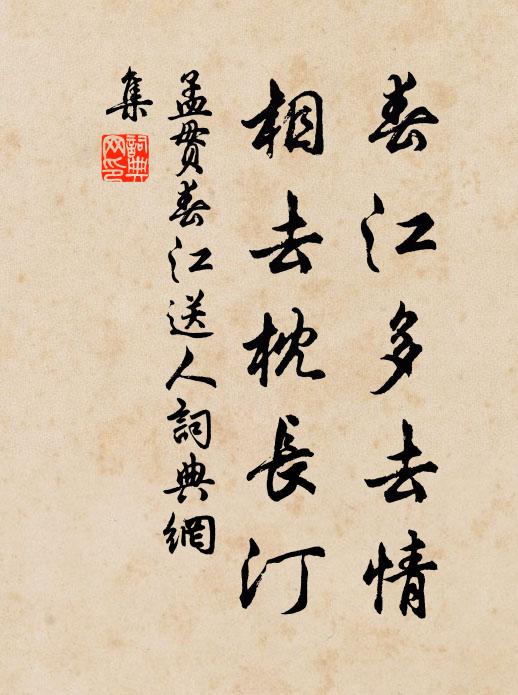 春江多去情
相去枕長汀
孟貫春江送人詞典網
集
詞典
网印